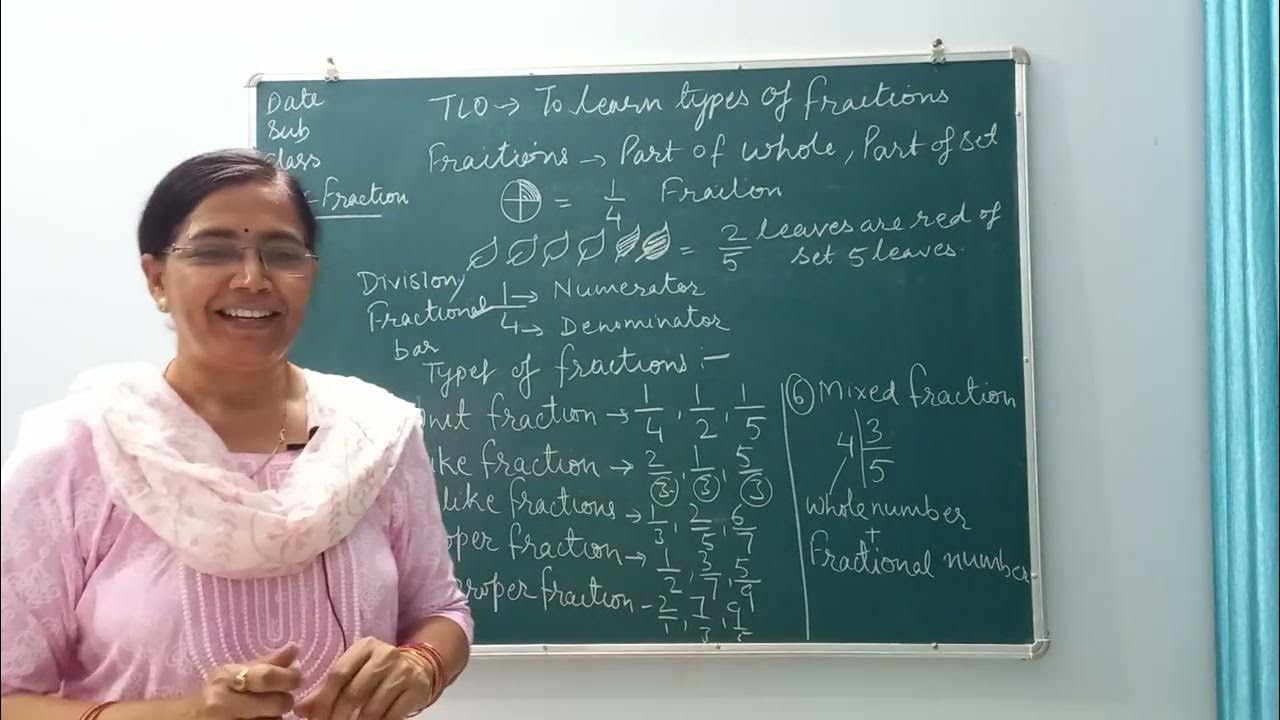 Date
Sub
Class
Fraction
TLO → To learn types of fractions
Fractions → Part of whole, Part of set
= 1/4 Fraction
= 2/5 leaves are red of
set 5 leaves.
Division,
Fractional
bar
1 → Numerator
4 → Denominator
Types of fractions :-
unit fraction → 1/4, 1/2, 1/5
ike fraction → 2/3, 1/3, 5/3
like fractions → 1/3, 2/5, 6/7
oper fraction → 1/2, 3/7, 5/9
proper fraction - 2/1, 7/3, 9/5
⑥ Mixed fraction
4 3/5
whole number
+
Fractional number